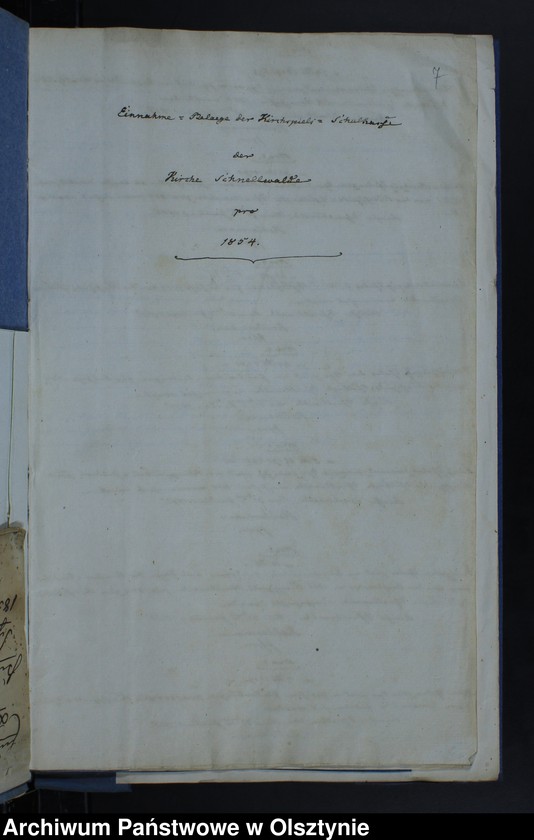 7
Einnahme = Belaege der Kirchspiels = Schulkasse
der
Kirche Schnellwalde
pro
1854.
185
Archiwum Państwowe w Olsztynie